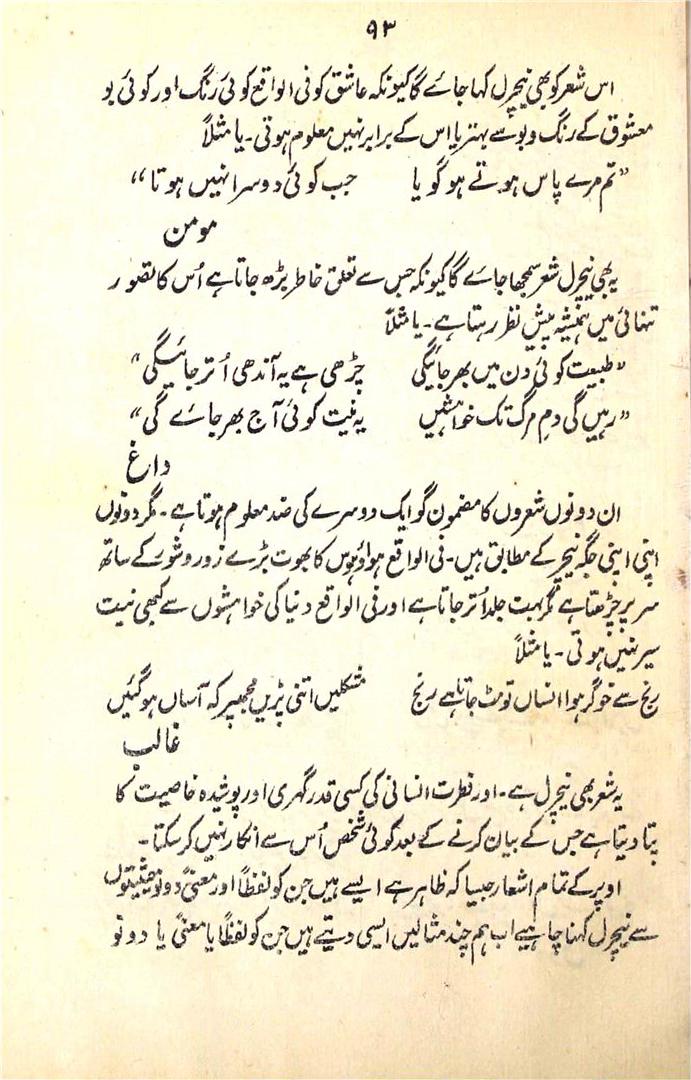 ۹۳
اس شعر کو بھی نیچرل کہا جائے گا کیونکہ عاشق کو فی الواقع کوئی رنگ اور کوئی بو
معشوق کے رنگ و بو سے بہتر یا اس کے برابر نہیں معلوم ہوتی۔ یا مثلاً
”تم مرے پاس ہوتے ہو گویا جب کوئی دوسرا نہیں ہوتا“
مومن
یہ بھی نیچرل شعر سمجھا جائے گا کیونکہ جس سے تعلق خاطر بڑھ جاتا ہے اُس کا تصور
تنہائی میں ہمیشہ پیش نظر رہتا ہے۔ یا مثلاً
”طبیعت کوئی دن میں بھر جائیگی چڑھی ہے یہ آندھی اُتر جائیگی“
”رہیں گی دمِ مرگ تک خواہشیں یہ نیت کوئی آج بھر جائے گی“
داغ
ان دونوں شعروں کا مضمون گو ایک دوسرے کی ضد معلوم ہوتا ہے۔ مگر دونوں
اپنی اپنی جگہ نیچر کے مطابق ہیں۔ فی الواقع ہوا و ہوس کا بھوت بڑے زور و شور کے ساتھ
سر پر چڑھتا ہے مگر بہت جلد اُتر جاتا ہے اور فی الواقع دنیا کی خواہشوں سے کبھی نیت
سیر نہیں ہوتی۔ یا مثلاً
رنج سے خوگر ہوا انساں تو مٹ جاتا ہے رنج مشکلیں اتنی پڑیں مجھپر کہ آساں ہو گئیں
غالب
یہ شعر بھی نیچرل ہے۔ اور فطرت انسانی کی کسی قدر گہری اور پوشیدہ خاصیت کا
پتا دیتا ہے جس کے بیان کرنے کے بعد کوئی شخص اُس سے انکار نہیں کر سکتا۔
اوپر کے تمام اشعار جیسا کہ ظاہر ہے ایسے ہیں جن کو لفظاً اور معنیً دونو حیثیتوں
سے نیچرل کہنا چاہیے اب ہم چند مثالیں ایسی دیتے ہیں جن کو لفظاً یا معنیً یا دونو